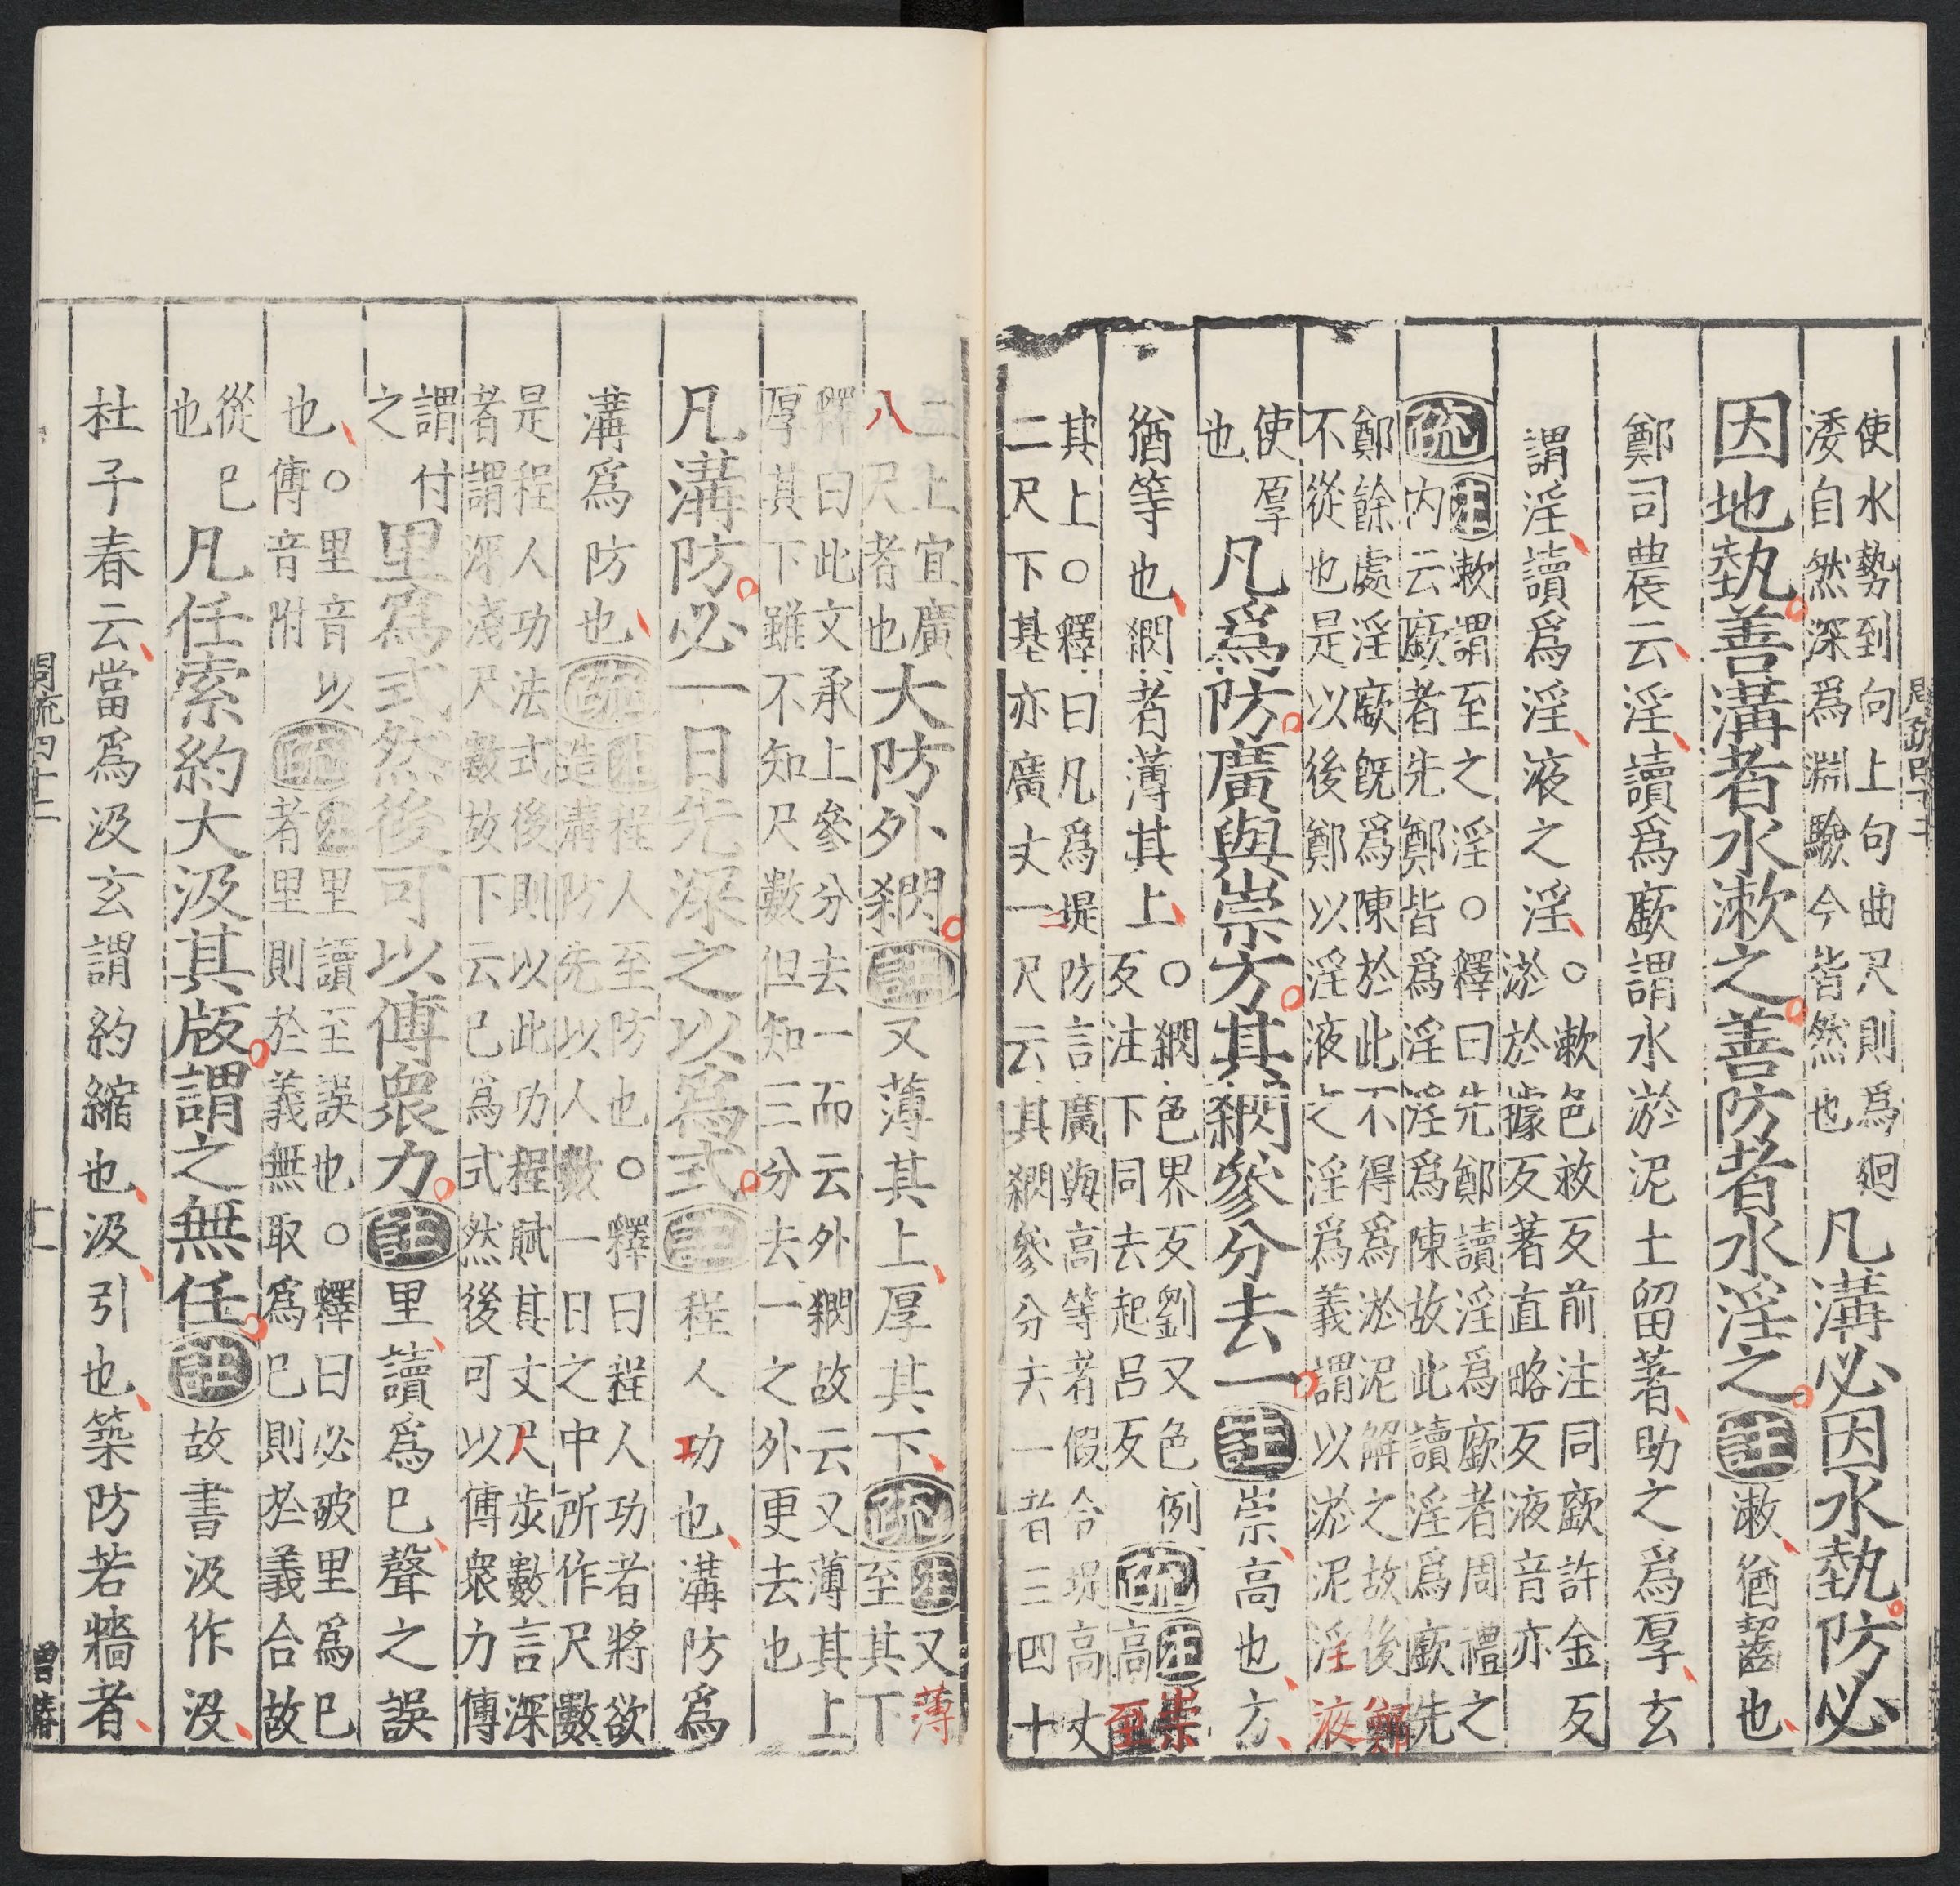 使水勢到向上句曲尺則爲廻
涹自然深爲淵驗今皆然也
凡溝必因水埶防必
因地埶善溝者水漱之善防者水淫之註漱猶齧也
鄭司農云淫讀爲廞謂水淤泥土留著助之爲厚玄
謂淫讀爲淫液之淫
○漱色救反前注同廞許金反
淤於據反著直略反液音亦
疏
注漱謂至之淫○釋曰先鄭讀淫爲廞者周禮之
内云廞者先鄭皆爲淫淫爲陳故此讀淫爲廞先
鄭餘處淫廞旣爲陳於此不得爲淤泥解之故後鄭
不從也是以後鄭以淫液之淫爲義謂以淤泥淫液
使厚
也
凡爲防廣與崇方其閷參分去一註崇高也方
猶等也閷者薄其上
○閷色界反劉又色例
反注下同去起呂反
疏
注崇
高至
其上○釋曰凡爲堤防言廣與高等者假令堤高丈
二尺下基亦廣丈二尺云其閷參分去一者三四十
二上宜廣
八尺者也
大防外閷註又薄其上厚其下疏
注又薄
至其下
釋曰此文承上參分去一而云外閷故云又薄其上
厚其下雖不知尺數但知三分去一之外更去也
凡溝防必一日先深之以爲式註程人功也溝防爲
溝爲防也疏
注程人至防也○釋曰程人功者將欲
造溝防先以人數一日之中所作尺數
是程人功法式後則以此功程賦其丈尺步數言深
者謂深淺尺數故下云已爲式然後可以傅衆力傅
謂付
之
里爲式然後可以傅衆力註里讀爲已聲之誤
也
○里音以
傅音附
疏
注里讀至誤也○釋曰必破里爲已
者里則於義無取爲已則於義合故
從已
也
凡任索約大汲其版謂之無任註故書汲作汲
杜子春云當爲汲玄謂約縮也汲引也築防若牆者
周疏四十二
十一